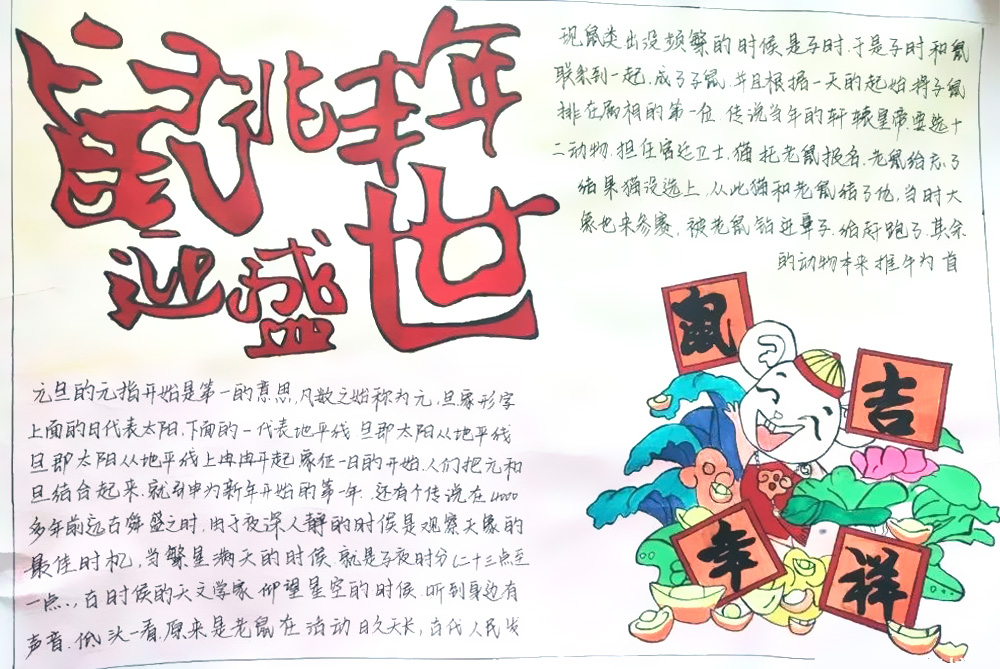 鼠兆丰年
迎盛世
元旦的元指开始是第一的意思,凡数之始称为元,旦象形字
上面的日代表太阳,下面的一代表地平线.旦即太阳从地平线
旦即太阳从地平线上冉冉升起象征一日的开始.人们把元和
旦结合起来,就引申为新年开始的第一年.还有个传说在4000
多年前远古舜盛之时,由于夜深人静的时候是观察天象的
最佳时机,当繁星满天的时候.就是子夜时分(二十三点至
一点.,古时候的天文学家仰望星空的时候.听到身边有
声音.低头一看.原来是老鼠在活动日久天长,古代人民发
现鼠类出没频繁的时候是子时.于是子时和鼠
联系到一起.成了子鼠.并且根据一天的起始将子鼠
排在属相的第一位.传说当年的轩辕皇帝要选十
二动物.担任宫廷卫士.猫托老鼠报名.老鼠给忘了
结果猫没选上.从此猫和老鼠结了仇,当时大
象也来参赛,被老鼠钻进鼻子.给赶跑了.其余
的动物本来推牛为首
鼠
吉
年
祥